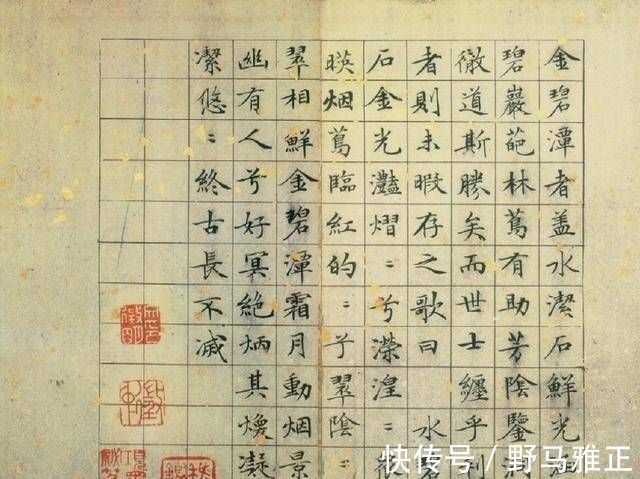 金碧潭者盖水潔石鮮光
碧巖葩林蔦有助芳陰鑒洞
徹道斯勝矣而世士纏乎利
者則未暇存之歌曰 水碧
石金光灧熠〻兮濴湟〻
暎烟蔦臨紅的〻兮翠陰〻
翠相鮮金碧潭霜月動烟景
幽有人兮好冥絕炳其煥凝
潔悠〻終古長不滅
快传号／野马雅正